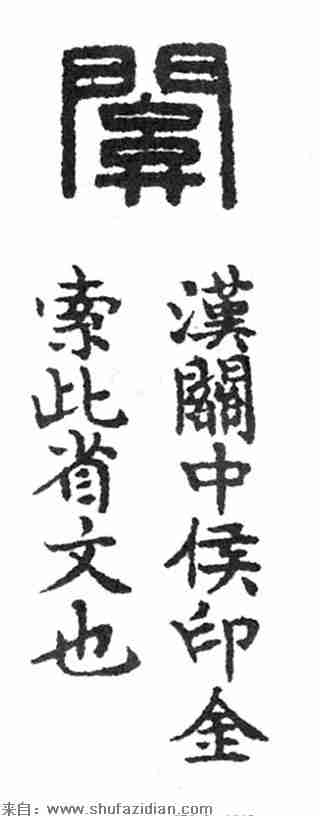 漢關中侯印金
索此省文也
来自：www.shufazidian.com